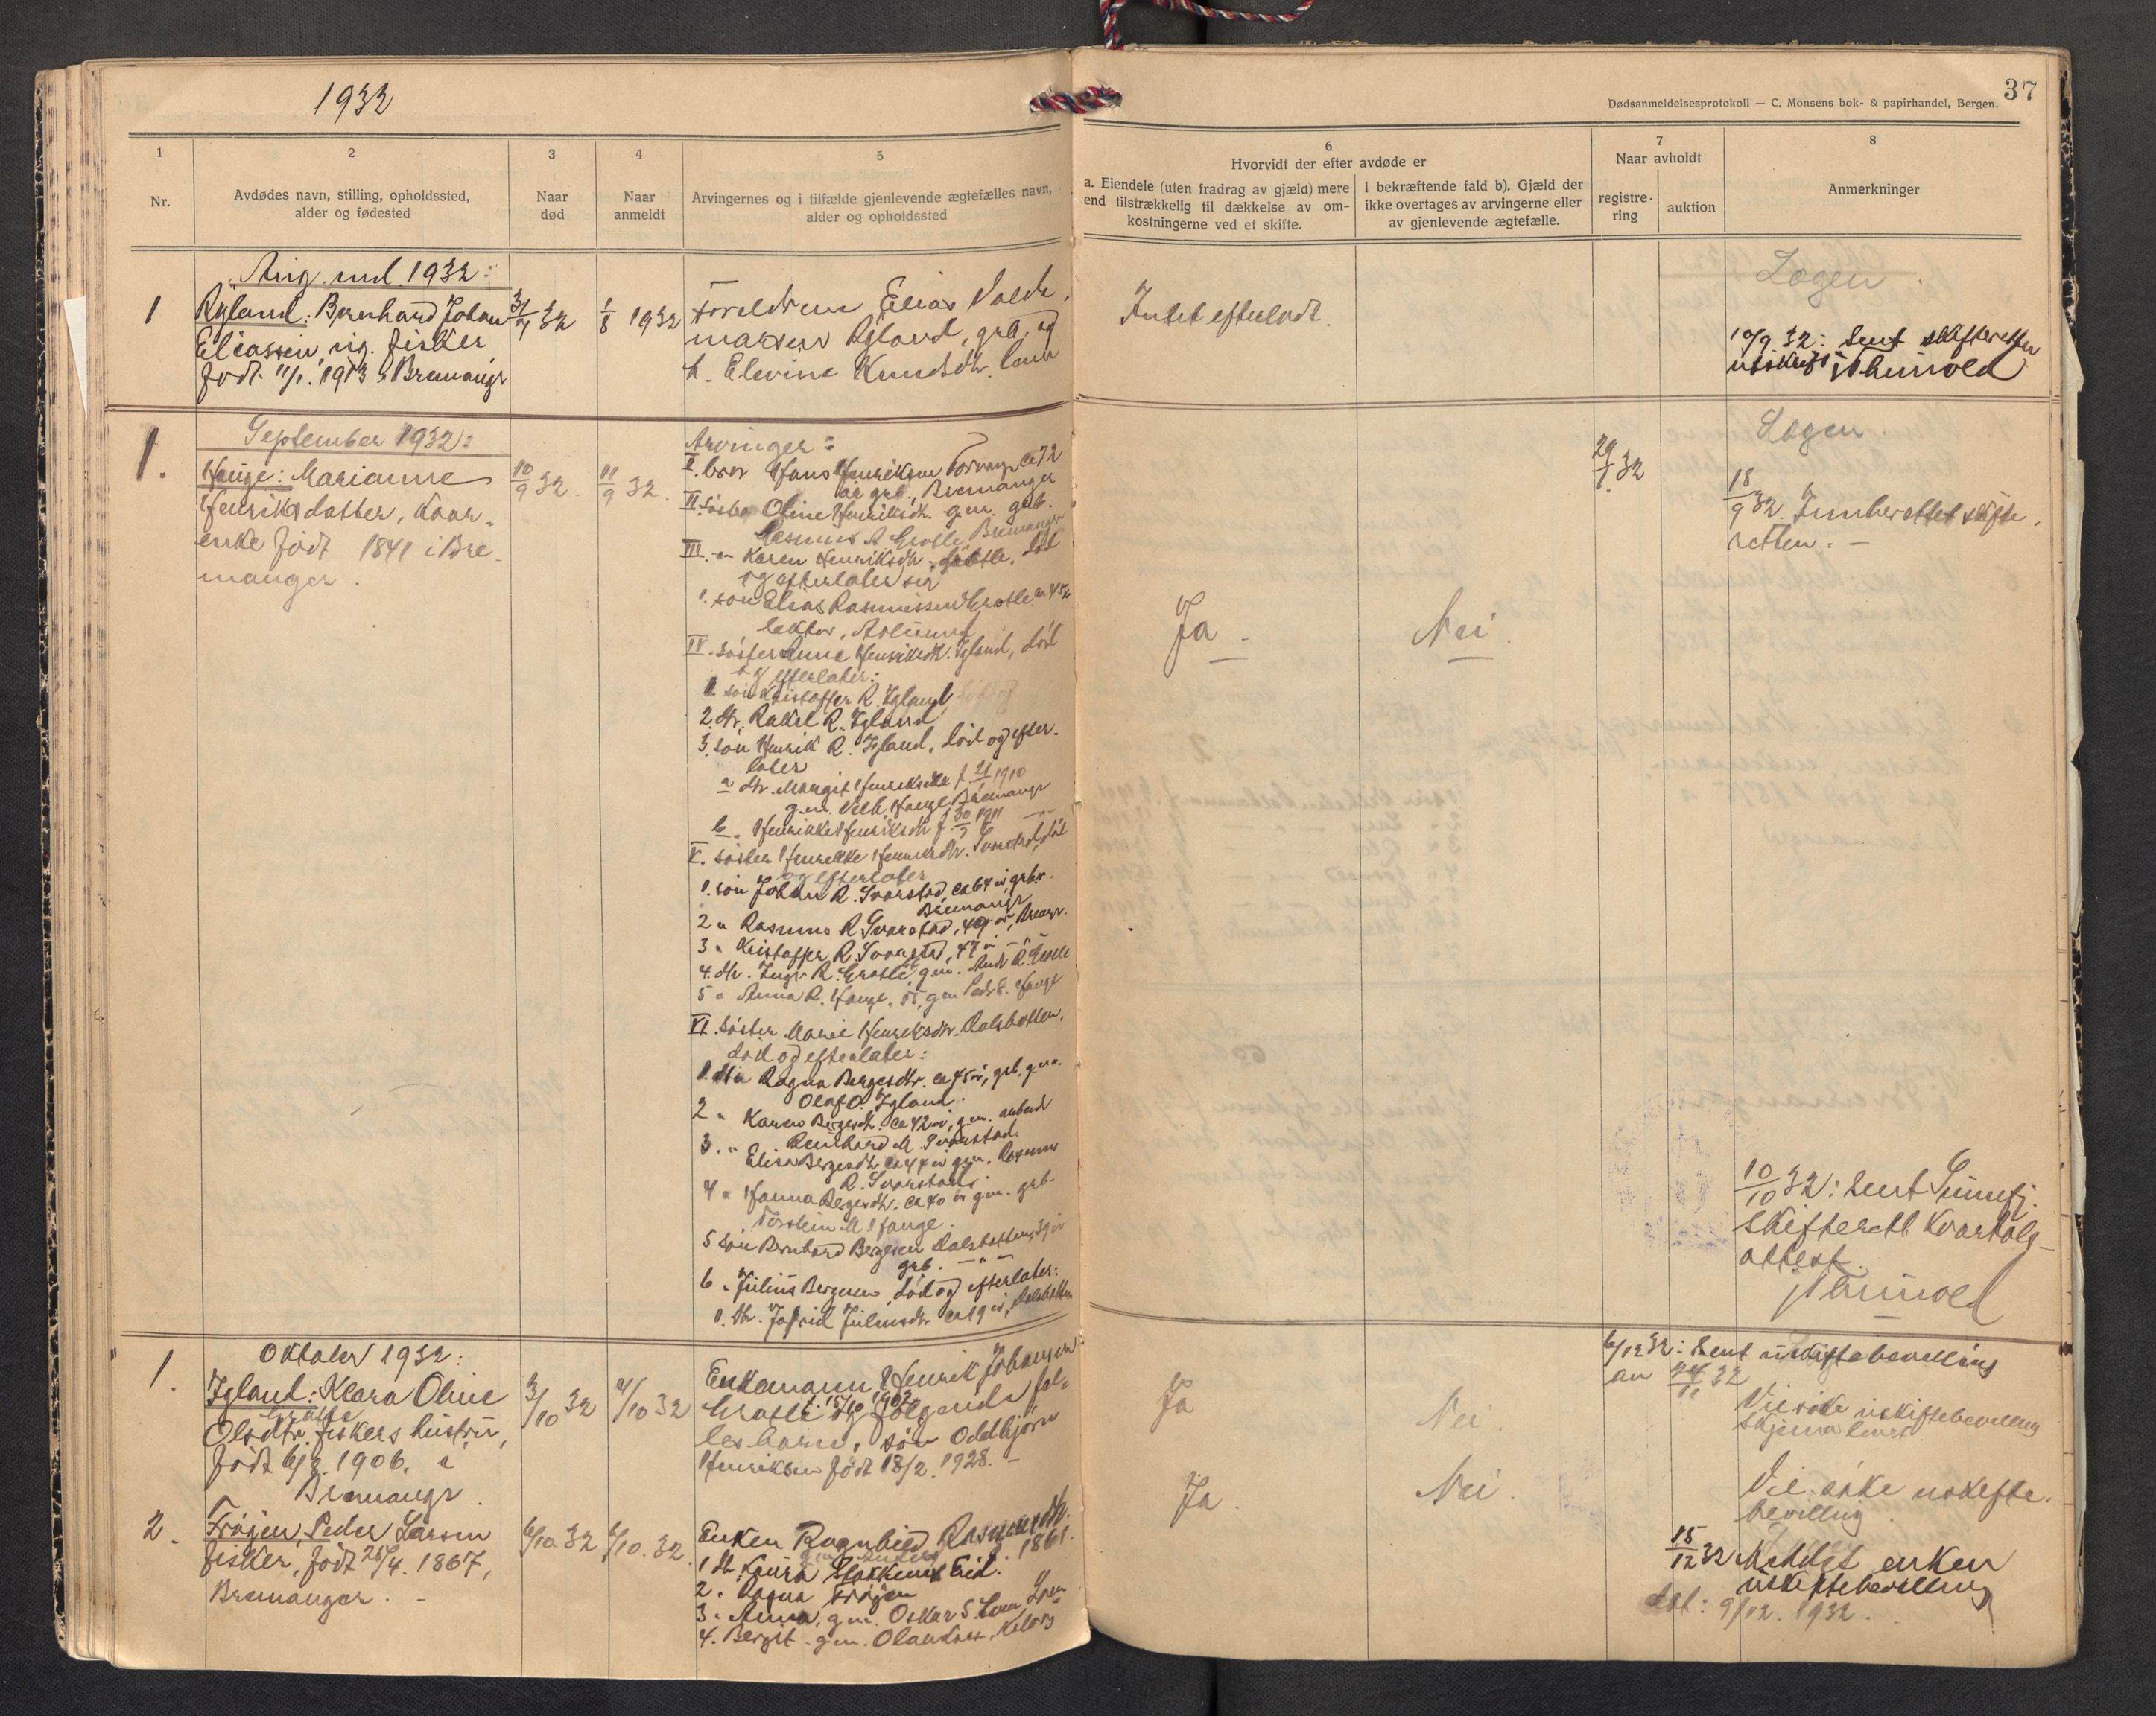 1932
37
Dødsanmeldelsesprotokoll — C. Monsens bok- & papirhandel, Bergen.
1
2
3
4
5
6
7
8
Nr.
Avdødes navn, stilling, opholdssted,
alder og fødested
Naar
død
Naar
anmeldt
Arvingernes og i tilfælde gjenlevende ægtefælles navn,
alder og opholdssted
Hvorvidt der efter avdøde er
a. Eiendele (uten fradrag av gjæld) mere
end tilstrækkelig til dækkelse av om-
kostningerne ved et skifte.
I bekræftende fald b). Gjæld der
ikke overtages av arvingerne eller
av gjenlevende ægtefælle.
Naar avholdt
registre-
ring
auktion
Anmerkninger
Aug. md. 1932:
1
Ryland: Bernhard Johan
Eliassen, ug. fisker
født 11/1. 1913 i Bremanger
32
1/8 1932
Foreldrene Elias Valde-
marsen Ryland, grb. og
h. Elevine Knudsdtr.
Intet efterladt.
Lægen.
10/9 32: Sent skifteretten
September 1932:
1.
Hauge: Marianne
Henriksdatter, Kaar-
enke født 1841 i Bre-
manger.
10/9 32.
11/9 32.
Arvinger:
I. bror Hans Henriksen ca 72
år grb., Bremanger
II. søster Oline Henriksdtr. gm. grb.
Rasmus A Grotle Bremanger
III. -"- Karen Henriksdtr. Grotle, død
og efterlater sig
1. søn Elias Rasmussen Grotle ca 45 år
lektor, Ålesund
IV. søster Anne Henriksdtr. Igland, død
og efterlater:
1. søn Kristoffer R. Igland
2. dtr. Rakel R. Igland
3. søn Henrik R. Igland, død og efter-
later
a dtr. Margit Henriksdtr f. 1910
g.m. Vilh. Hauge Bremanger
b. Henrikke Henriksdtr f. 1911
V. søster Henrikke Henriksdtr. Svarstad, død
og efterlater
1. søn Johan R. Svarstad, ca 64 år, grbr.
Bremanger
2 " Rasmus R Svarstad, 49 år, Bremgr.
3 " Kristoffer R. Svarstad, 47 år -"-
4. dtr. Inga R. Grotle, g.m. R. Grotle
5 " Anna R. Hauge, 55, gm Hauge
VI. søster Marie Henriksdtr. Dalsbotten,
død og efterlater:
1. dtr Ragna Bergesdtr. ca 45 år, grb. g.m.
Olaf O. Igland.
2 " Karen Bergesdtr. ca 42 år, g.m. arbeider
Reinhard M. Svarstad.
3. " Elisa Bergesdtr. ca 44 år gm. Rasmus
R. Svarstad.
4 " Hanna Bergesdtr. ca 40 år gm. grb.
Torstein M Hauge.
5 søn Bernhard Bergesen Dalsbotten, 39 år
grb. -"-
6 " Julius Bergesen, død og efterlater:
1. dtr. Juliusdtr ca 19 år, Dalsbotten
Ja
Nei.
32
Lægen.
18/9 32. Innberettet skifte-
retten. —
10/10 32: Sent Sunnfj.
skifterett kvartals-
attest.
Oktober 1932:
1.
Igland: Klara Oline
Olsdtr. Grotle fiskers hustru,
født 6/8. 1906. i
Bremanger.
3/10 32
4/10 32
Enkemann Henrik Johansen
Grotle f. 15/10 1902 og følgende fel-
les barn, søn Oddbjørn
Henriksen født 18/2. 1928. —
Ja
Nei.
6/12 32: Sent uskiftebevilling
av 24/11 32
Vil søke uskiftebevilling
skjema sent
2.
Frøyen, Peder Larsen
fisker, født 25/4. 1867,
Bremanger. —
6/10 32
6/10. 32.
Enken Ragnhild Rasmusdtr. f. 1861.
1 dtr. Laura Eid.
2. " Ragna Frøyen
3. " Anna, g.m. Oskar S.
4. Bergit. g.m.
Ja.
Nei.
Vil søke uskifte-
bevilling.
15/12 32 Meddelt enken
uskiftebevilling
dat: 9/12. 1932.